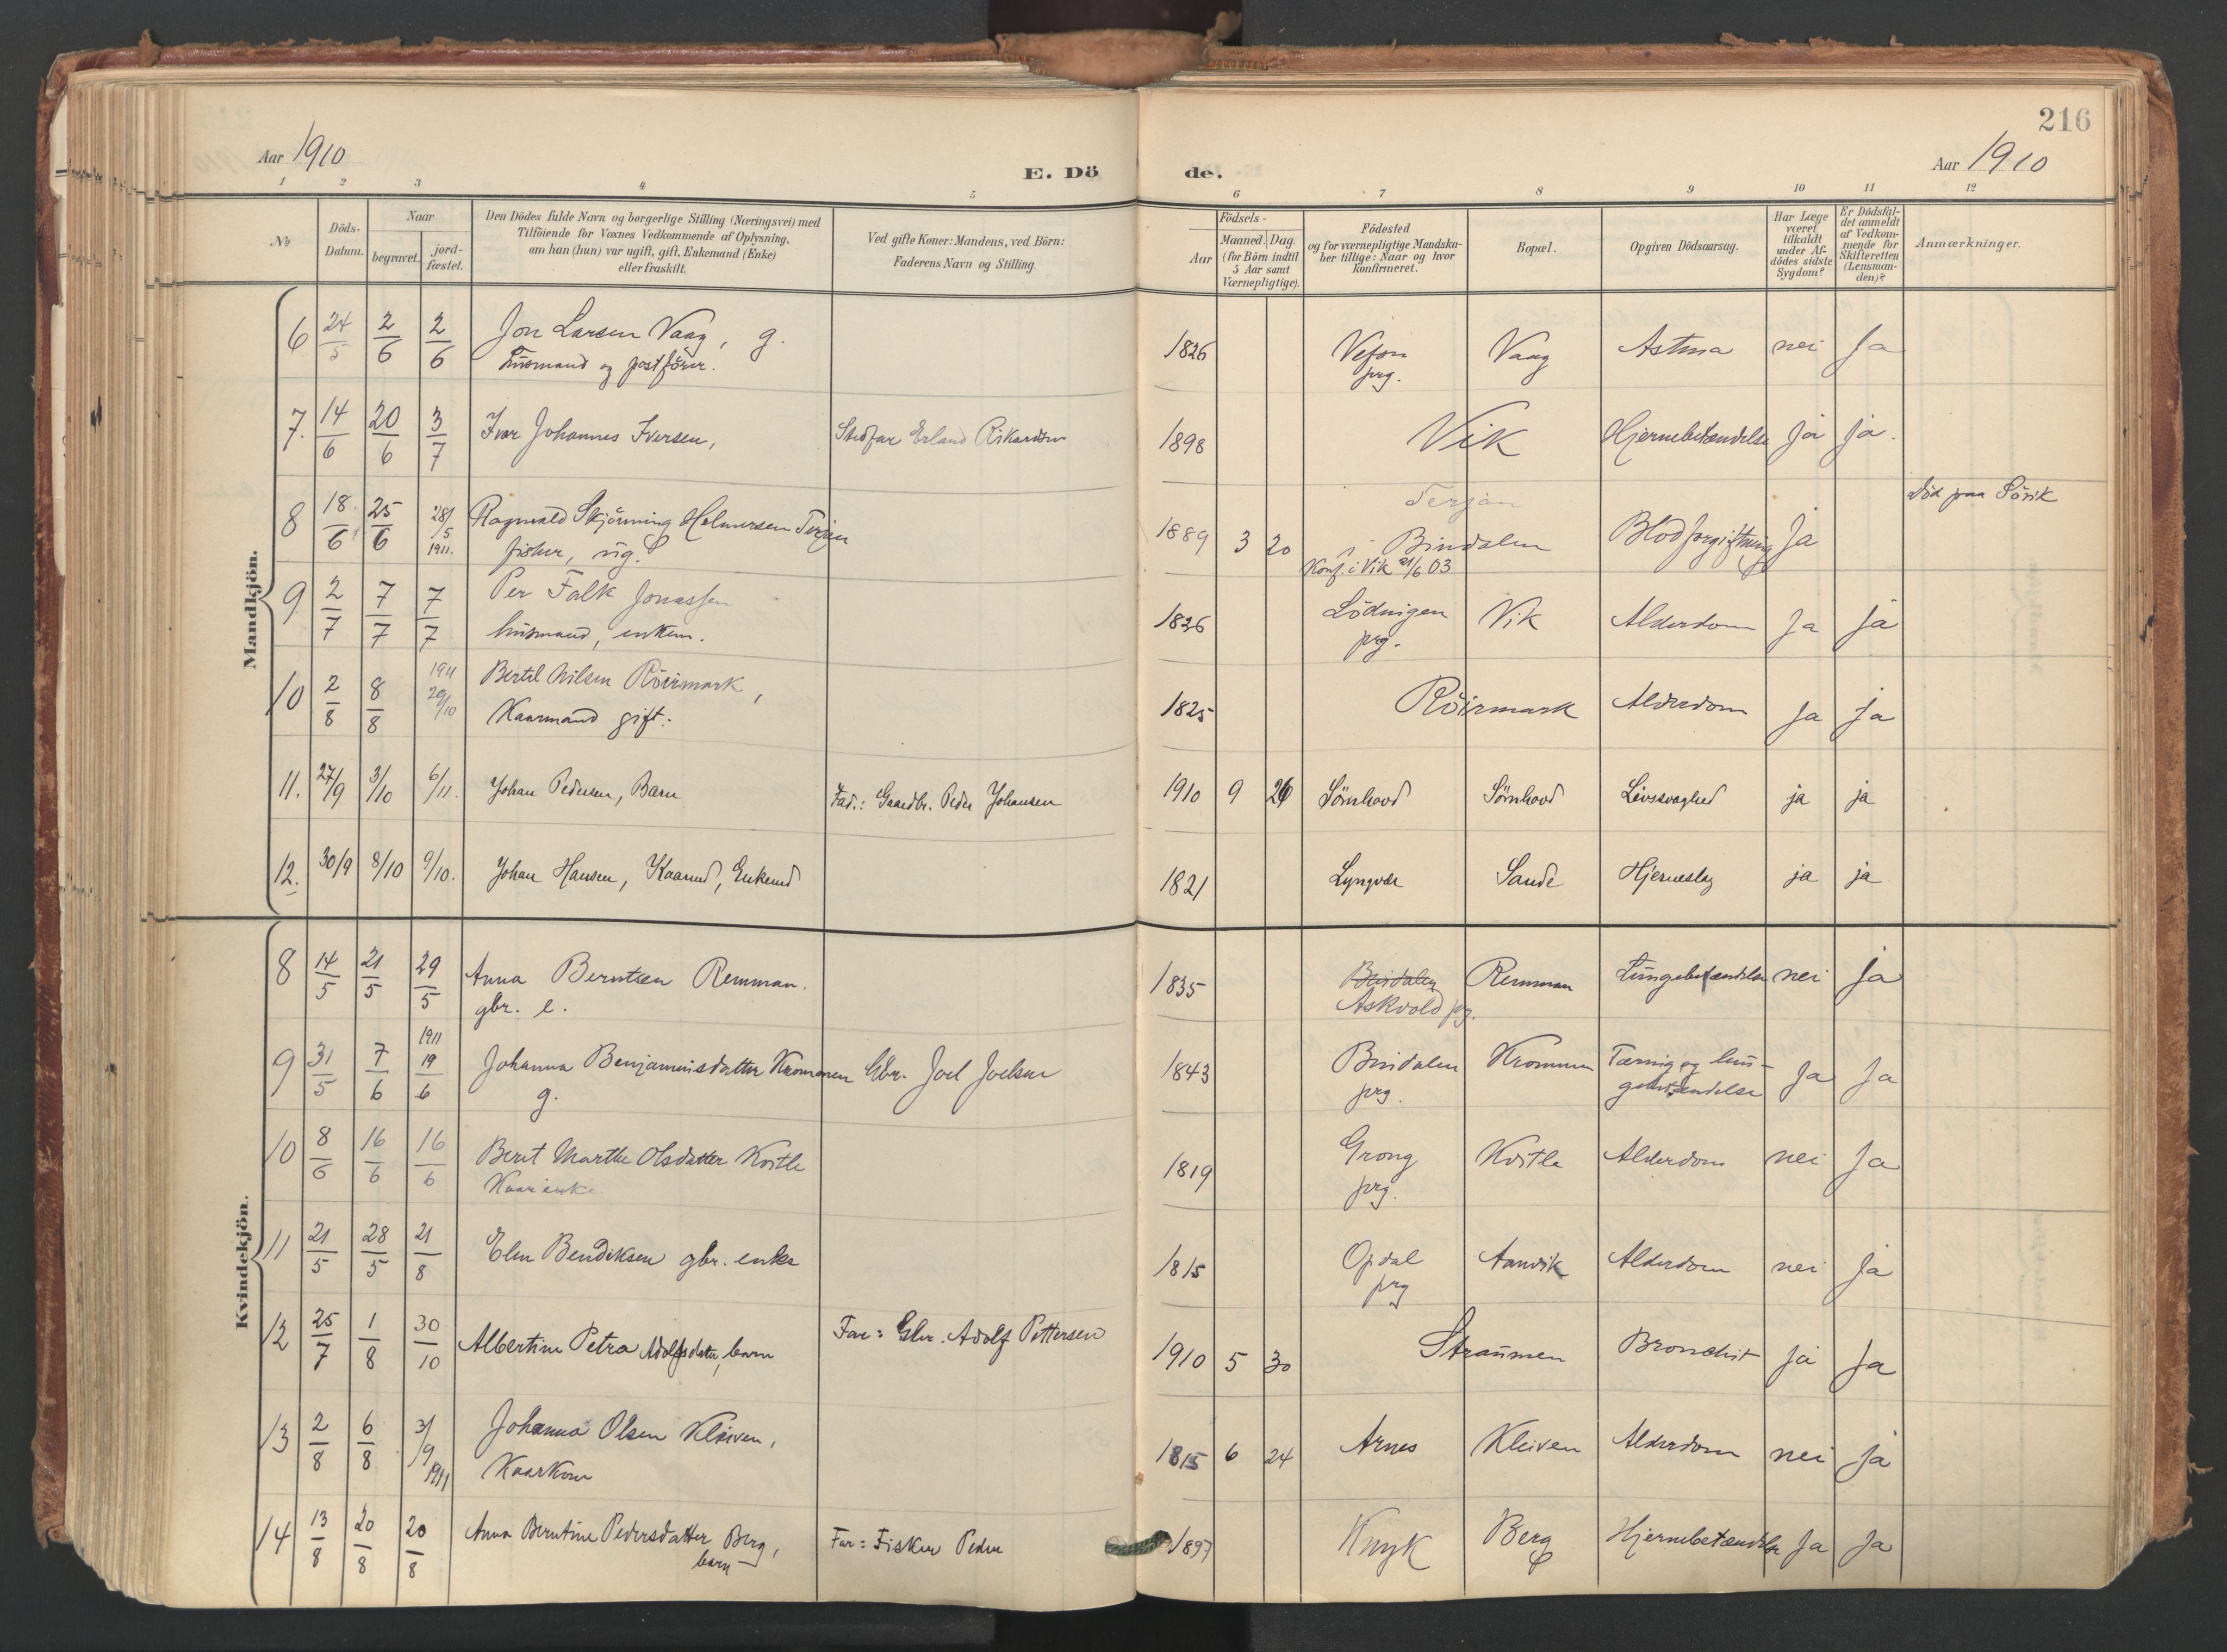 216
Aar 1910
E. Dö
de.
Aar 1910
1 2 3 4 5 6 7 8 9 10 11 12
No
Döds-
Datum.
Naar
begravet.
jord-
fæstet.
Den Dödes fulde Navn og borgerlige Stilling (Næringsvei) med
Tilföiende for Voxnes Vedkommende af Oplysning,
om han (hun) var ugift, gift, Enkemand (Enke)
eller fraskilt.
Ved gifte Koner: Mandens, ved Börn:
Faderens Navn og Stilling.
Födsels-
Aar
Maaned. Dag.
(for Börn indtil
5 Aar samt
Værnepligtige).
Födested
og for værnepligtige Mandska-
ber tillige: Naar og hvor
konfirmeret.
Bopæl.
Opgiven Dödsaarsag.
Har Læge
været
tilkaldt
under Af-
dödes sidste
Sygdom?
Er Dödsfal-
det anmeldt
af Vedkom-
mende for
Skifteretten
(Lensman-
den)?
Anmærkninger.
Mandkjön.
6 24/5 2/6 2/6 Jon Larsen Vaag, g. 1826 Vefsn Vaag Astma nei Ja
husmand og postförer. prg.
7. 14/6 20/6 3/7 Ivar Johannes Iversen, Stedfar Erland Rikardsen 1898 Vik Hjernebetændelse Ja ja.
Terjan Död paa Sörvik
8 18/6 25/6 28/5 1911. Ragnvald Skjönning Helmersen Terjan 1889 3 20 i Bindalen Blodforgiftning Ja
fisker, ug. Konf. i Vik 21/6 03
9 2/7 7/7 7/7 Per Falk Jonassen 1826 Lödingen Vik Alderdom Ja ja
husmand, enkem. prg.
10 2/8 8/8 1911 29/10 Bertel Nilsen Röirmark, 1825 Röirmark Alderdom Ja Ja
Kaarmand gift.
11. 27/9 3/10 6/11. Johan Pedersen, Barn Fad.: Gaardbr. Peder Johansen 1910 9 26 Sörnhood Sörnhood Livssvaghed ja ja
12. 30/9 8/10 9/10. Johan Hansen, Kaarmd, Enkemd 1821 Lyngvær Sande Hjerneslag ja ja
Kvindekjön.
8 14/5 21/5 29/5 Anna Berntsen Remman. 1835 Bindalen Remman Lungebetændelse nei ja
gbr. e. Askvold prg.
9 31/5 7/6 1911 19/6 Johanna Benjaminsdatter Kromanen Gbr. Joel Joelsen 1843 Bindalen Kromnen Tæring og lun-
g. prg. gebetændelse Ja Ja
10 8/6 16/6 16/6 Berit Marthe Olsdatter Kvitla 1819 Grong Kvitla Alderdom nei Ja
Kaarenke prg.
11 21/5 28/5 21/8 Elen Bendiksen gbr. enke 1815 Opdal Aanvik Alderdom nei Ja
prg
12 25/7 1/8 30/10 Albertine Petra Adolfsdatter, barn Far: Gbr. Adolf Pettersen 1910 5 30 Straumen Bronchit Ja Ja
13 2/8 6/8 3/9 1911 Johanna Olsen Kleiven, 1815 6 24 Arnes Kleiven Alderdom nei Ja
Kaarkone
14 13/8 20/8 20/8 Anna Berntine Pedersdatter Berg, Far: Fisker Peder 1897 Knyk Berg Hjernebetændelse Ja Ja
barn